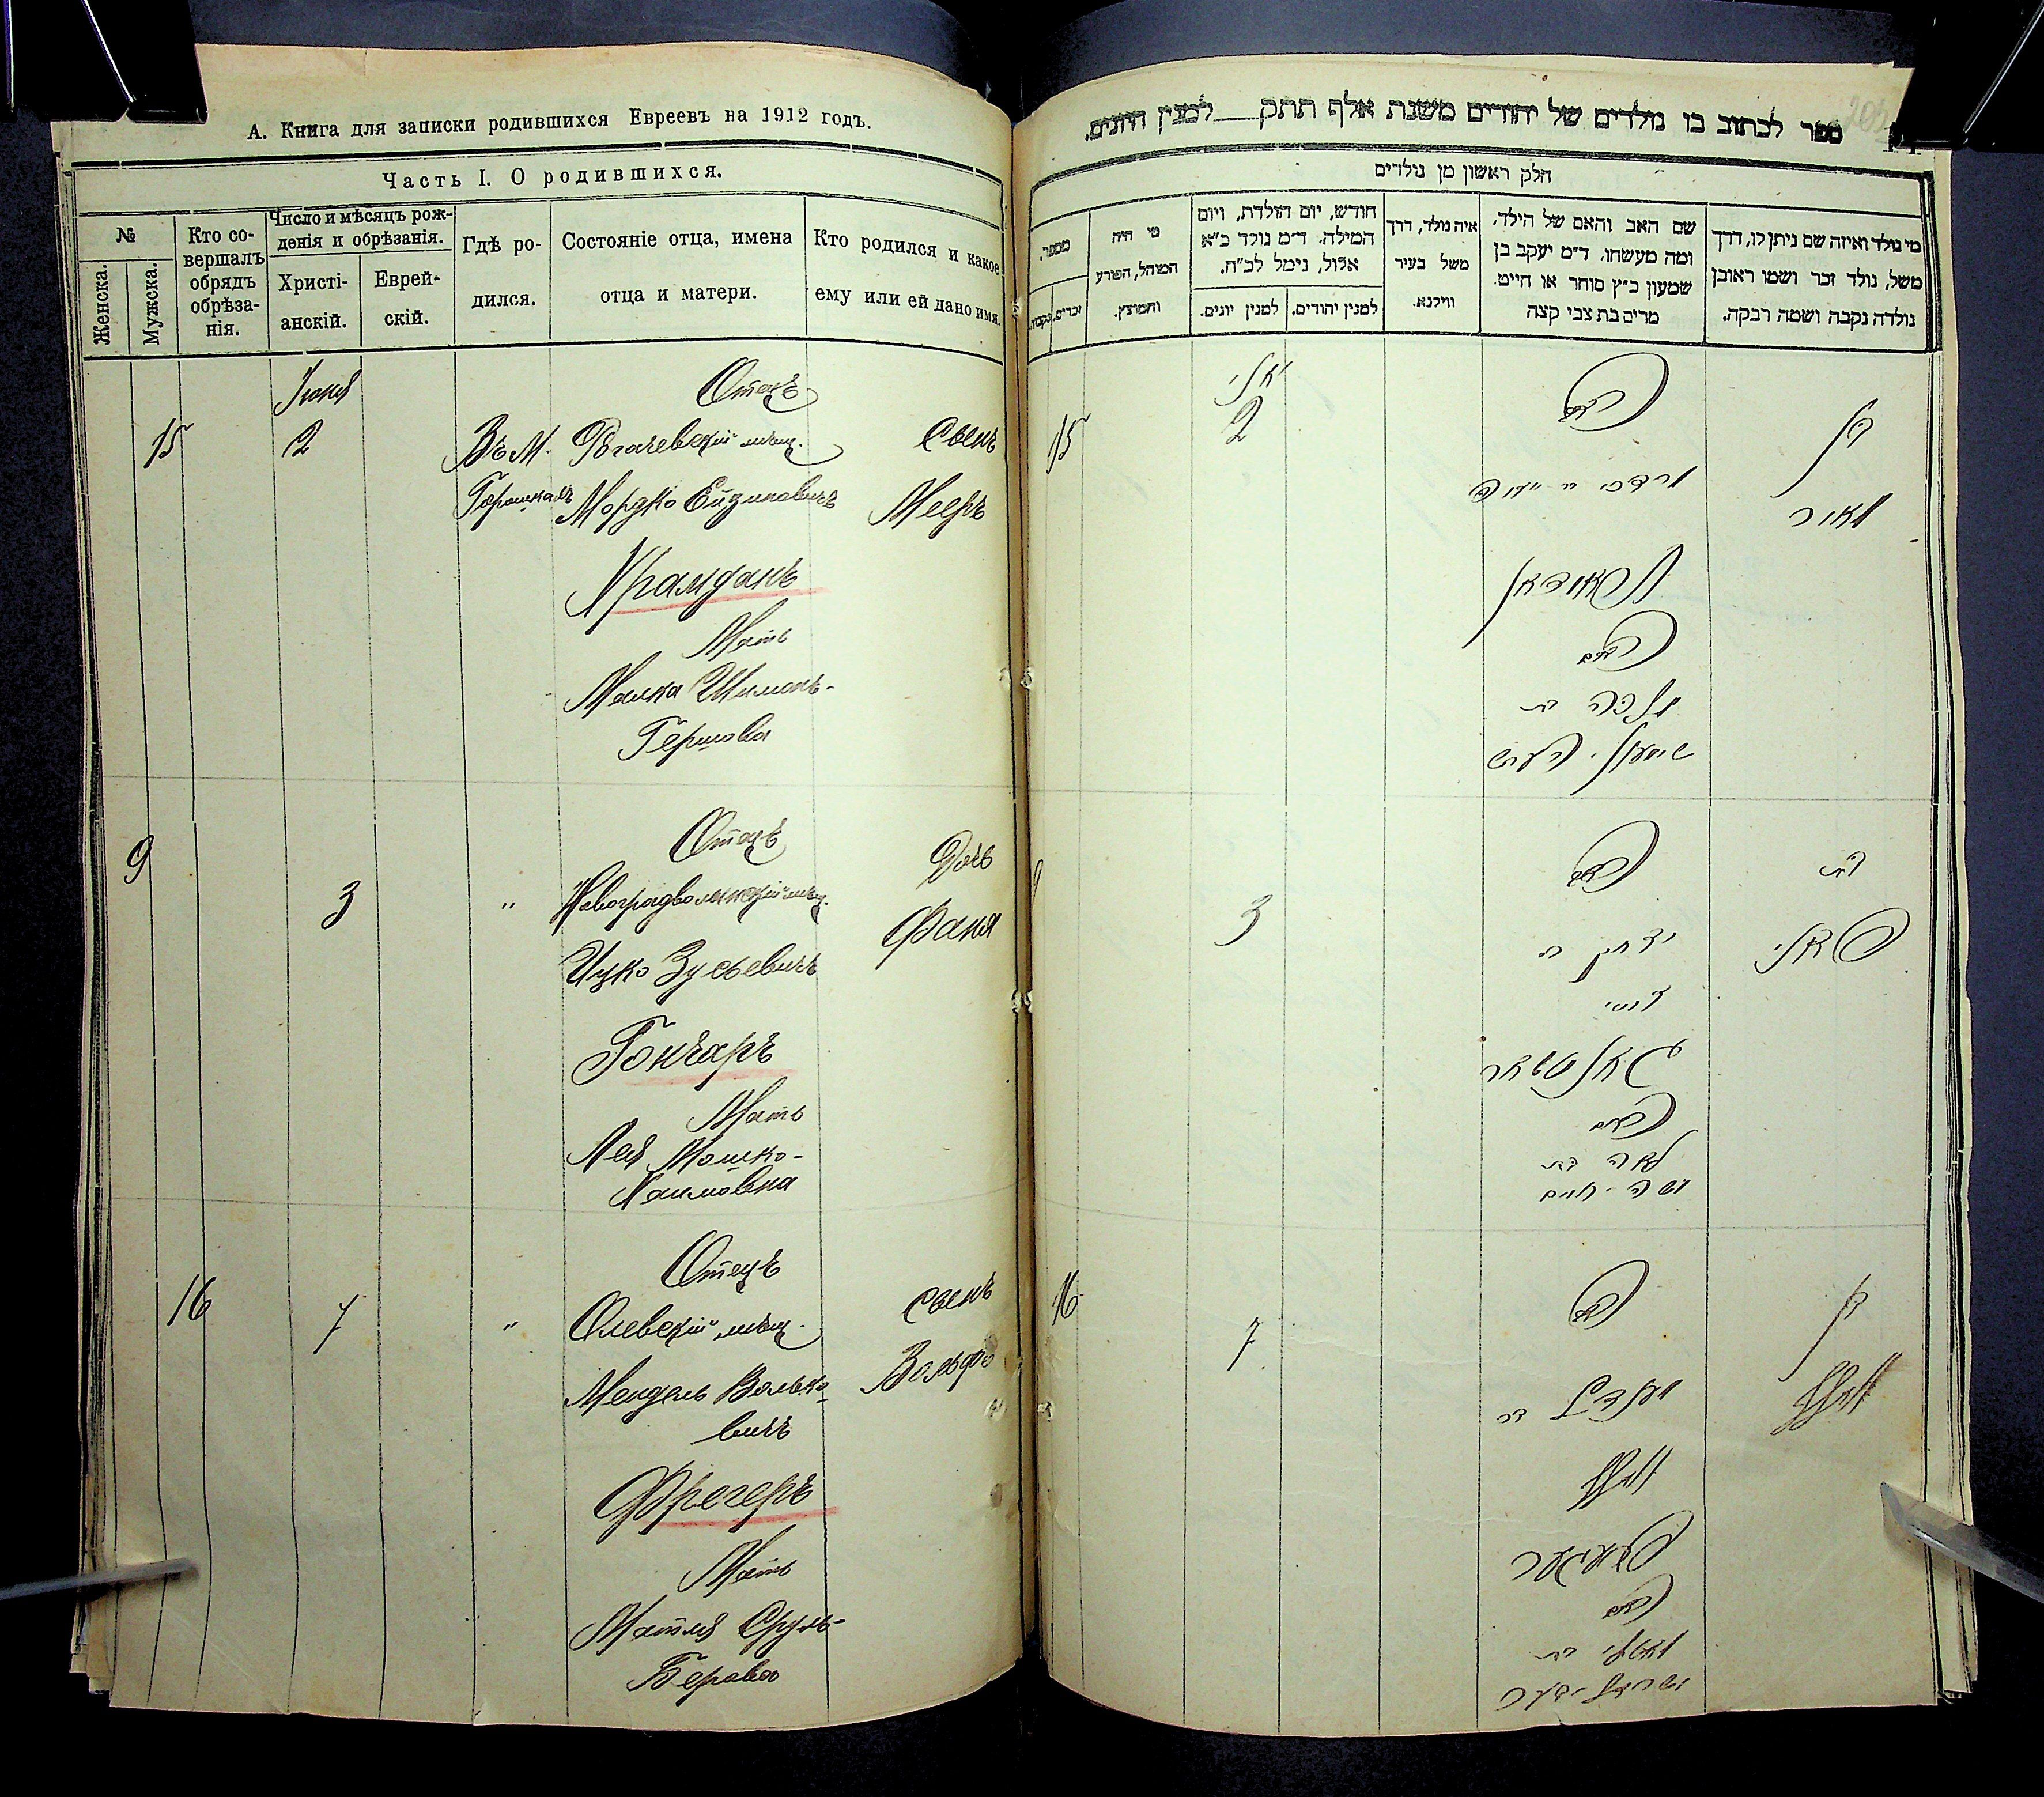 А. Книга для записки родившихся Евреевъ на 1912 годъ.
Часть I. О родившихся.
№
Женска.
Мужска.
Кто со-
вершалъ
обрядъ
обрѣза-
нія.
Число и мѣсяцъ рож-
денія и обрѣзанія.
Христі-
анскій.
Еврей-
скій.
Гдѣ ро-
дился.
Состояніе отца, имена
отца и матери.
Кто родился и какое
ему или ей дано имя.
Іюня
Отецъ
15 2 Въ М. мѣщ. Сынъ
Мордко Мееръ
Мать
Малка Шимонъ-
Гершова
Отецъ
9 3 " Новоградволынскій мѣщ. Дочь
Ицко Зусьевичъ Фаня
Гончаръ
Мать
Лея Мошко-
Хаимовна
Отецъ
16 7 " Олевскій мѣщ. Сынъ
Мендель Волько- Вольфъ
вичъ
Фрегеръ
Мать
Матля Сруль-
Берова
ספר לכתוב בו נולדים של יהודים משנת אלף תתק למנין היונים.
חלק ראשון מן נולדים
מספר.
זכרים.
נקבות.
מי היה
המוהל, הפורע
והמוצץ.
חודש, יום הולדת, ויום
המילה. ד"מ נולד כ"א
אלול, נימל לכ"ח.
למנין יונים.
למנין יהודים.
איה נולד, דרך
משל בעיר
ווילנא.
שם האב והאם של הילד,
ומה מעשהו. ד"מ יעקב בן
שמעון כ"ץ סוחר או חייט
מרים בת צבי קצה
מי נולד ואיזה שם ניתן לו, דרך
משל, נולד זכר ושמו ראובן
נולדה נקבה ושמה רבקה.
15 2 האב בן
מאיר
האם
מלכה בת
9 3 האב בת
יצחק ב
זוסי
האם
לאה בת
משה-חיים
16 7 האב בן
מענדל בר וואלף
וואלף
פרעגער
האם
מאטלי בת
ישראל-בער